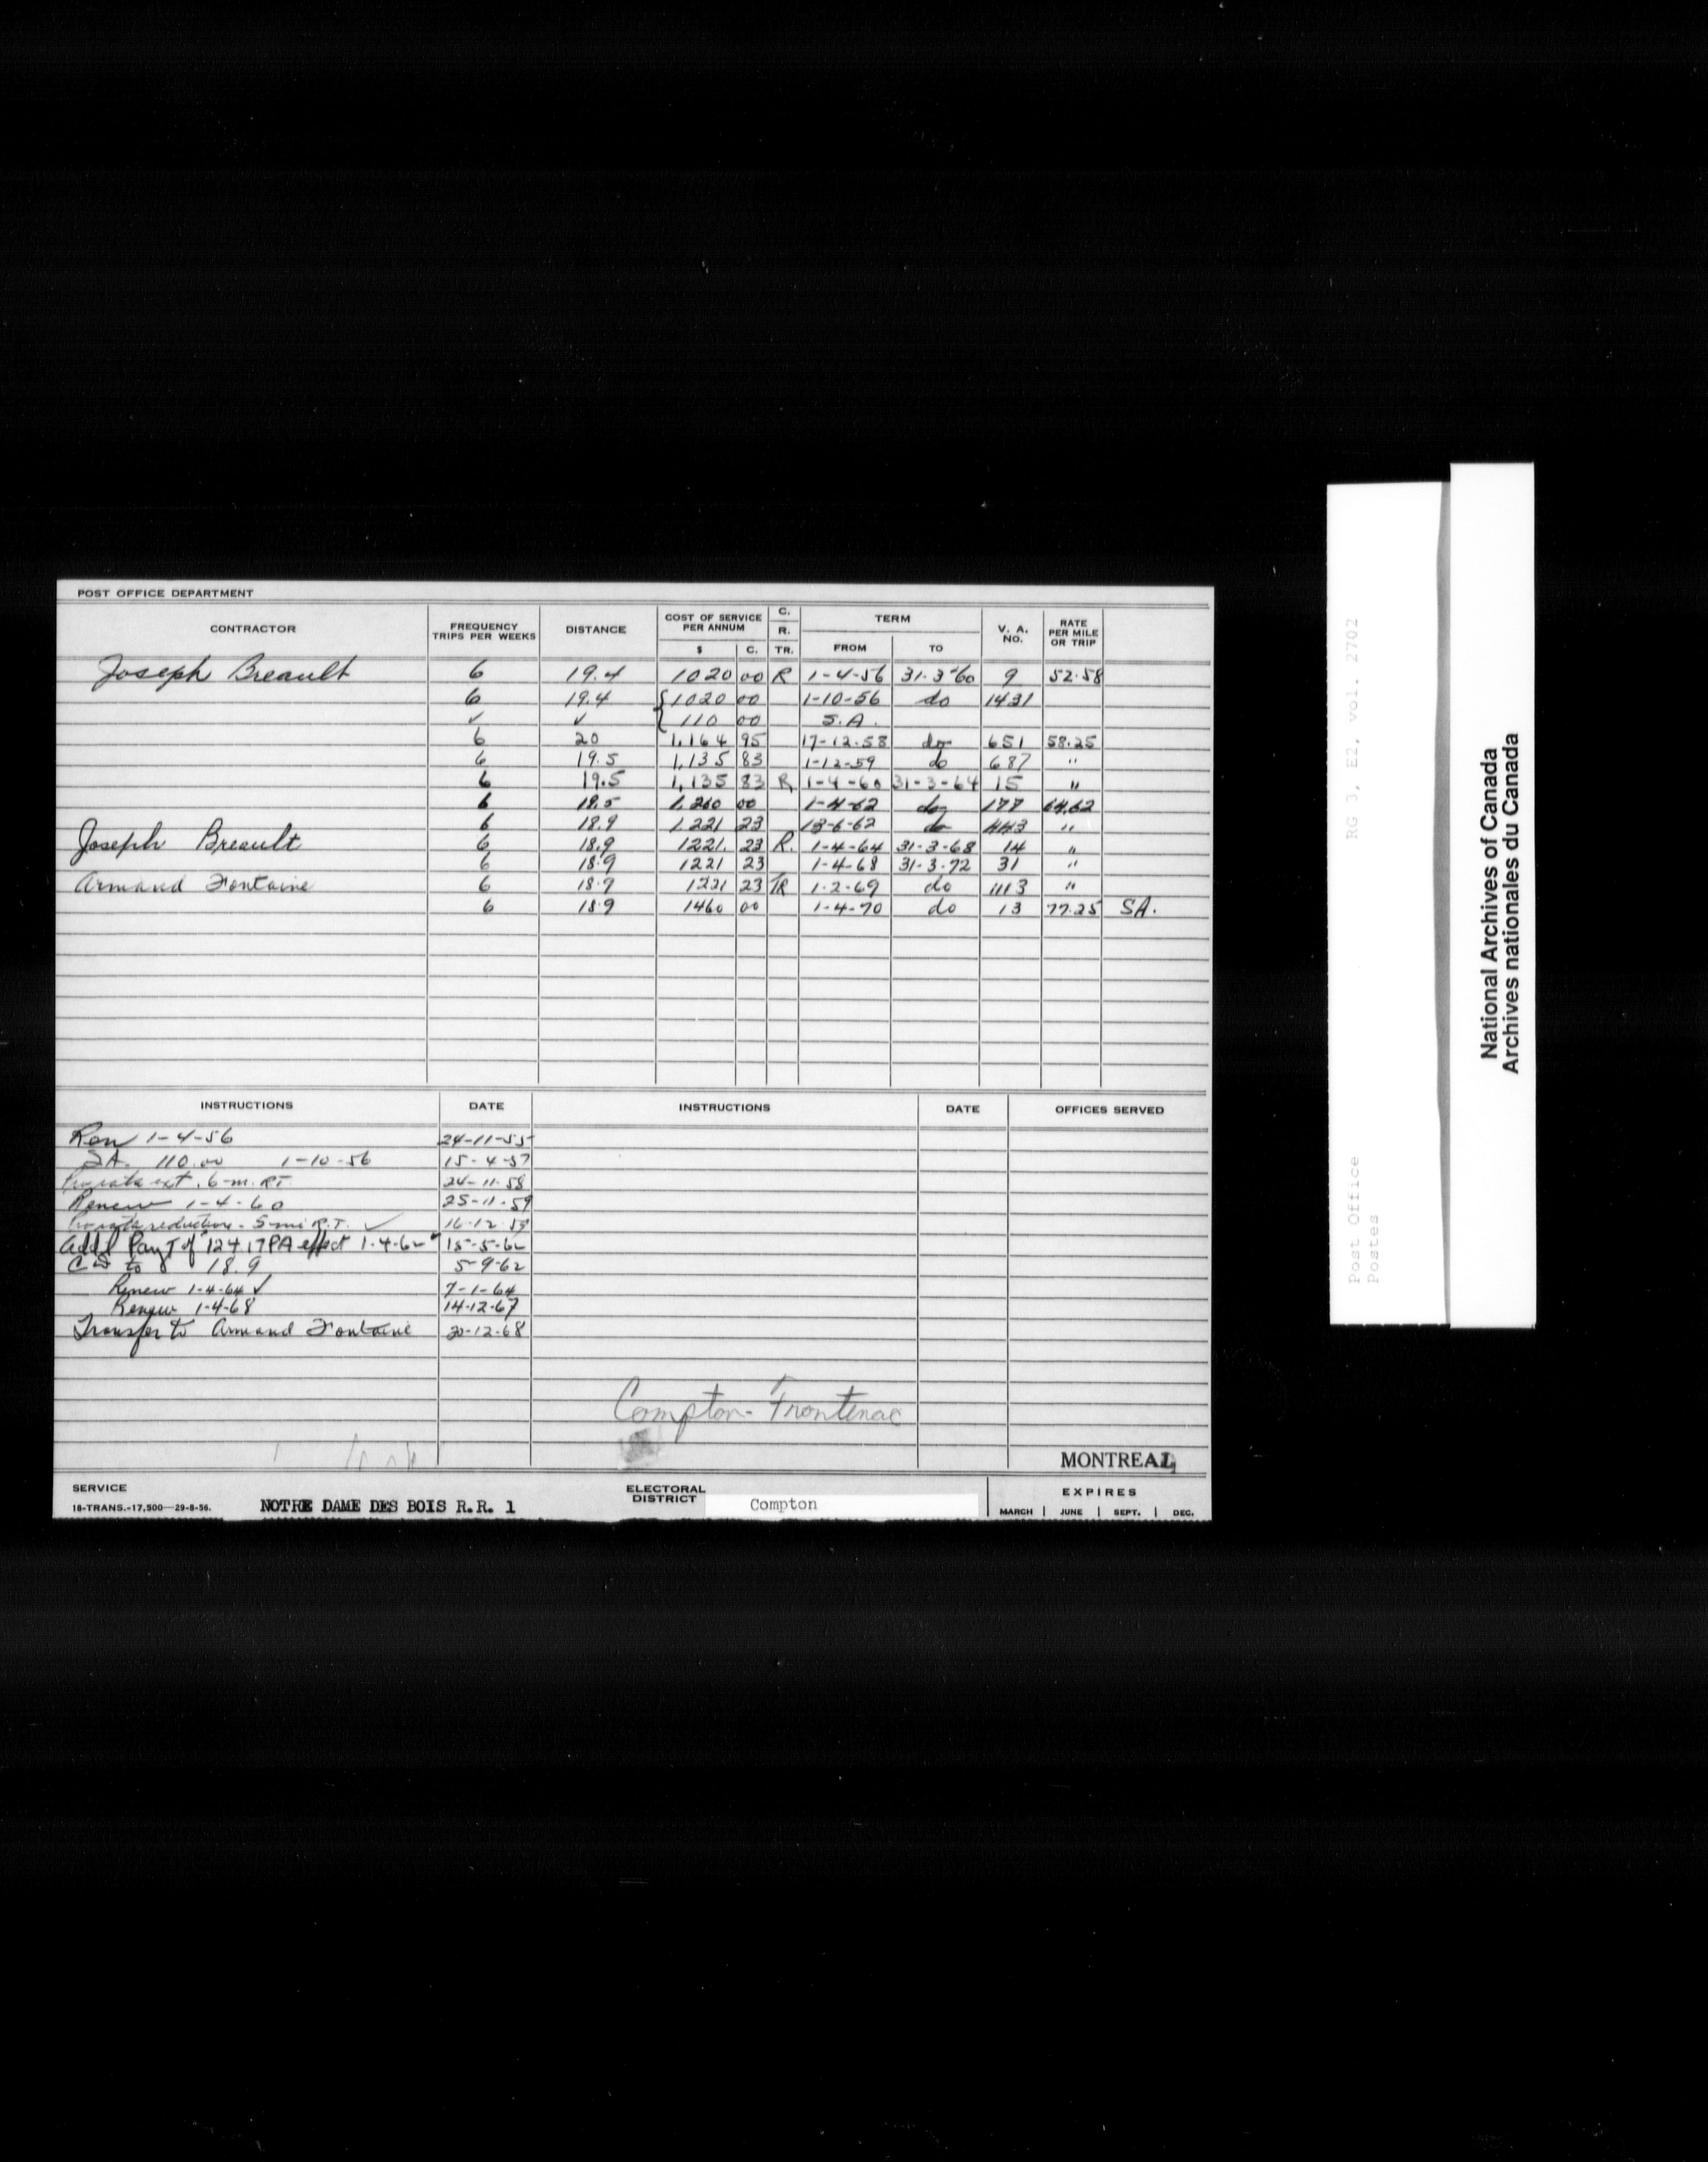 POST OFFICE DEPARTMENT
CONTRACTOR FREQUENCY TRIPS PER WEEKS DISTANCE COST OF SERVICE PER ANNUM $ C. C. R. TR. TERM FROM TO V. A. NO. RATE PER MILE OR TRIP
Joseph Breault 6 19.4 1020 00 R 1-4-56 31-3-60 9 52.58
6 19.4 { 1020 00 1-10-56 do 1431
✓ ✓ { 110 00 S.A.
6 20 1,164 95 17-12-58 do 651 58.25
6 19.5 1,135 83 1-12-59 do 687 "
6 19.5 1,135 83 R 1-4-60 31-3-64 15 "
6 19.5 1,260 00 1-4-62 do 177 64.62
6 18.9 1,221 23 13-6-62 do 443 "
Joseph Breault 6 18.9 1221. 23 R. 1-4-64 31-3-68 14 "
6 18.9 1221 23 1-4-68 31-3-72 31 "
Armand Fontaine 6 18.9 1221 23 TR 1-2-69 do 1113 "
6 18.9 1460 00 1-4-70 do 13 77.25 SA.
INSTRUCTIONS DATE INSTRUCTIONS DATE OFFICES SERVED
Ren 1-4-56 24-11-55
SA. 110.00 1-10-56 15-4-57
Prorata ext. 6-m. RT. 24-11-58
Renew 1-4-60 25-11-59
Prorata reduction - 5 mi R.T. ✓ 16-12-59
Add'l Paymt of 124.17 PA effect 1-4-62 15-5-62
to 18.9 5-9-62
Renew 1-4-64 ✓ 7-1-64
Renew 1-4-68 14-12-67
Transfer to Armand Fontaine 30-12-68
Compton-Frontenac
MONTREAL
SERVICE
18-TRANS.-17,500—29-8-56. NOTRE DAME DES BOIS R.R. 1
ELECTORAL DISTRICT Compton
EXPIRES
MARCH | JUNE | SEPT. | DEC.
RG 3, E2, vol. 2702
Post Office
Postes
National Archives of Canada
Archives nationales du Canada